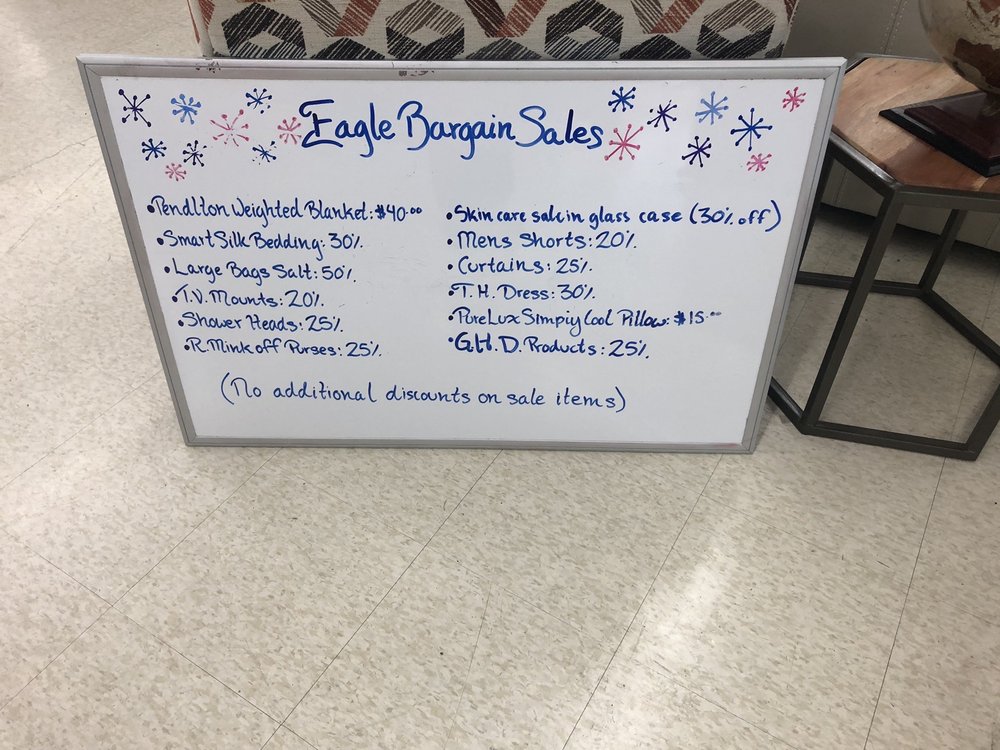 Eagle Bargain Sales
•Pendlton Weighted Blanket: $40.00
•Smart Silk Bedding: 30%
•Large Bags Salt: 50%
•T.V. Mounts: 20%
•Shower Heads: 25%
•R. Mink off Purses: 25%
•Skin care sale in glass case (30% off)
•Mens Shorts: 20%
•Curtains: 25%
•T.H. Dress: 30%
•PureLux Simpiy Cool Pillow: $15.00
•G.H.D. Products: 25%
(No additional discounts on sale items)